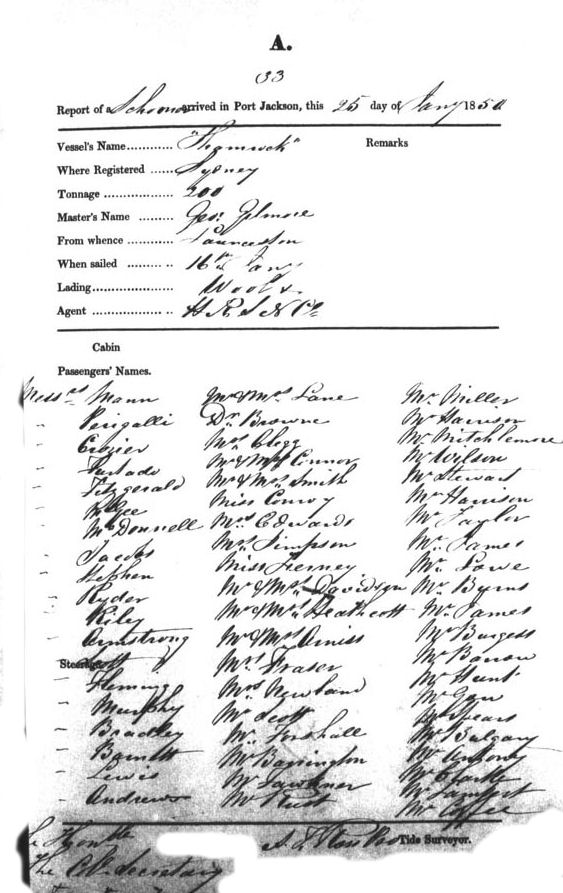 A.
33
Report of a Schooner arrived in Port Jackson, this 25 day of Jany 185
Vessel's Name............ "Shamrock" Remarks
Where Registered ...... Sydney
Tonnage .................. 200
Master's Name ......... Geo. Gilmore
From whence ............ Launceston
When sailed ......... .. 16th Jany
Lading...................... Wool &
Agent .................. .. H R S N Co
Cabin
Passengers' Names.
Messrs Mann Mr & Mrs Lane Mr Miller
" Perigalli Dr Browne Mr Harrison
" Crozier Mrs Clegg Mr Mitchlemore
" Furtado Mr & Mrs Connor Mr Wilson
" Fitzgerald Mr & Mrs Smith Mr Stewart
" Miss Conroy Mr Harrison
" McDonnell Mrs Edwards Mr Taylor
" Jacobs Mrs Simpson Mr James
" Stephen Miss Mr Lowe
" Ryder Mr & Mrs Davidson Mr Byrns
" Riley Mr & Mrs Heathcott Mr James
" Armstrong Mr & Mrs Mr Burgess
Steerage Mrs Fraser Mr Barrow
" Fleming Mrs Newland Mr Hunt
" Murphy Mr Scott Mr
" Bradley Mr Mr Spears
" Bonett Mr Barrington Mr Balgary
" Lewis Mr Fawkner Mr Antony
" Andrews Mr Mr Clarke
Mr Lambert
Mr
Tide Surveyor.
The Honble
The Col. Secretary